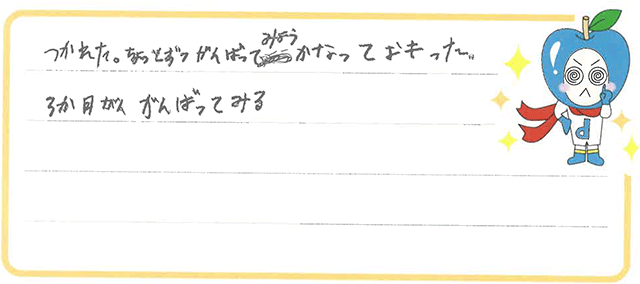 つかれた。ちょっとずつがんばってみようかなっておもった。
3か月かんがんばってみる
d